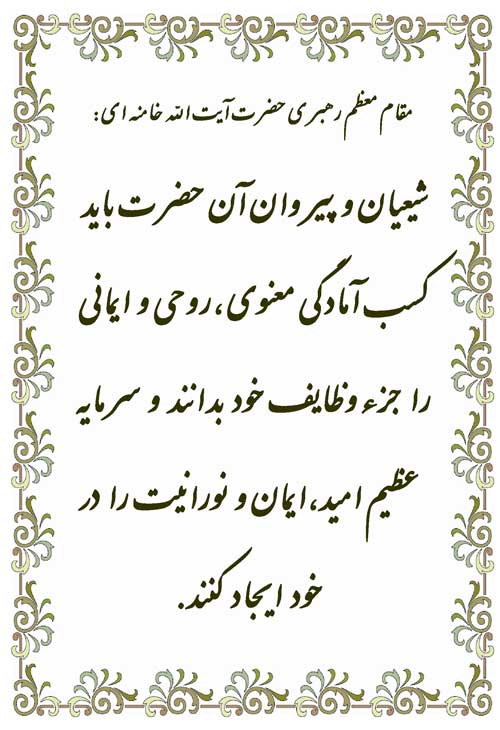 مقام معظم رهبری حضرت آیت الله خامنه ای:
شیعیان و پیروان آن حضرت باید
کسب آمادگی معنوی، روحی و ایمانی
را جزء وظایف خود بدانند و سرمایه
عظیم امید، ایمان و نورانیت را در
خود ایجاد کنند.